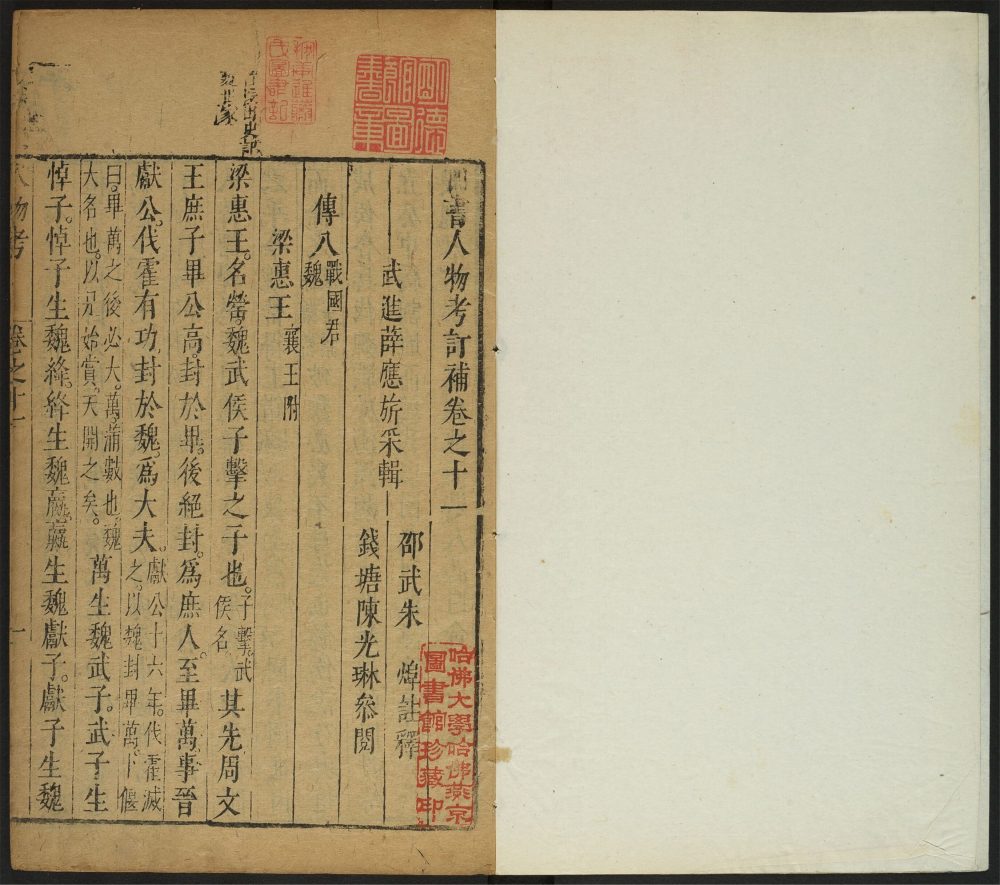 四書人物考訂補卷之十一
武進薛應旂采輯
邵武朱　焯註釋
錢塘陳光琳叅閱
傳八 戰國君 魏
梁惠王 襄王附
梁惠王。名罃。魏武侯子擊之子也。子擊。武侯名 其先周文
王庶子畢公高。封於畢。後絕封。爲庶人。至畢萬。事晉
獻公。代霍有功。封於魏。爲大夫。獻公十六年。代霍滅之。以魏封畢萬。卜偃
曰。畢萬之後必大。萬。滿數也。魏大名也。以是始賞。天開之矣。 萬生魏武子。武子生
悼子。悼子生魏絳。絳生魏嬴。嬴生魏獻子。獻子生魏
人物考
卷之十一
一
明德郷圖書章
哈佛大學哈佛燕京
圖書館珍藏印